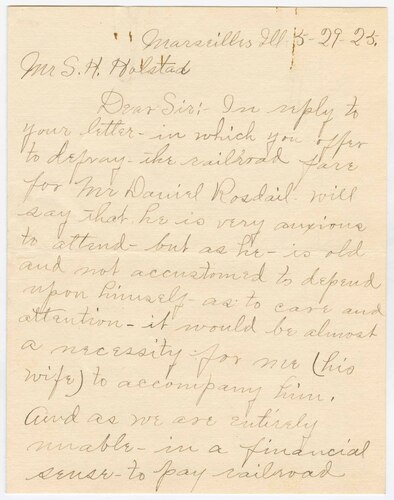 Marseilles Ill. 5-29-25.
Mr S. H. Holstad
Dear Sir:- In reply to
your letter - in which you offer
to defray - the railroad fare
for Mr Daniel Rosdail. will
say that he is very anxious
to attend - but as he - is old
and not accustomed to depend
upon himself - as to care and
attention - it would be almost
a necessity for me (his
wife) to accompany him.
And as we are entirely
unable - in a financial
sense - to pay railroad